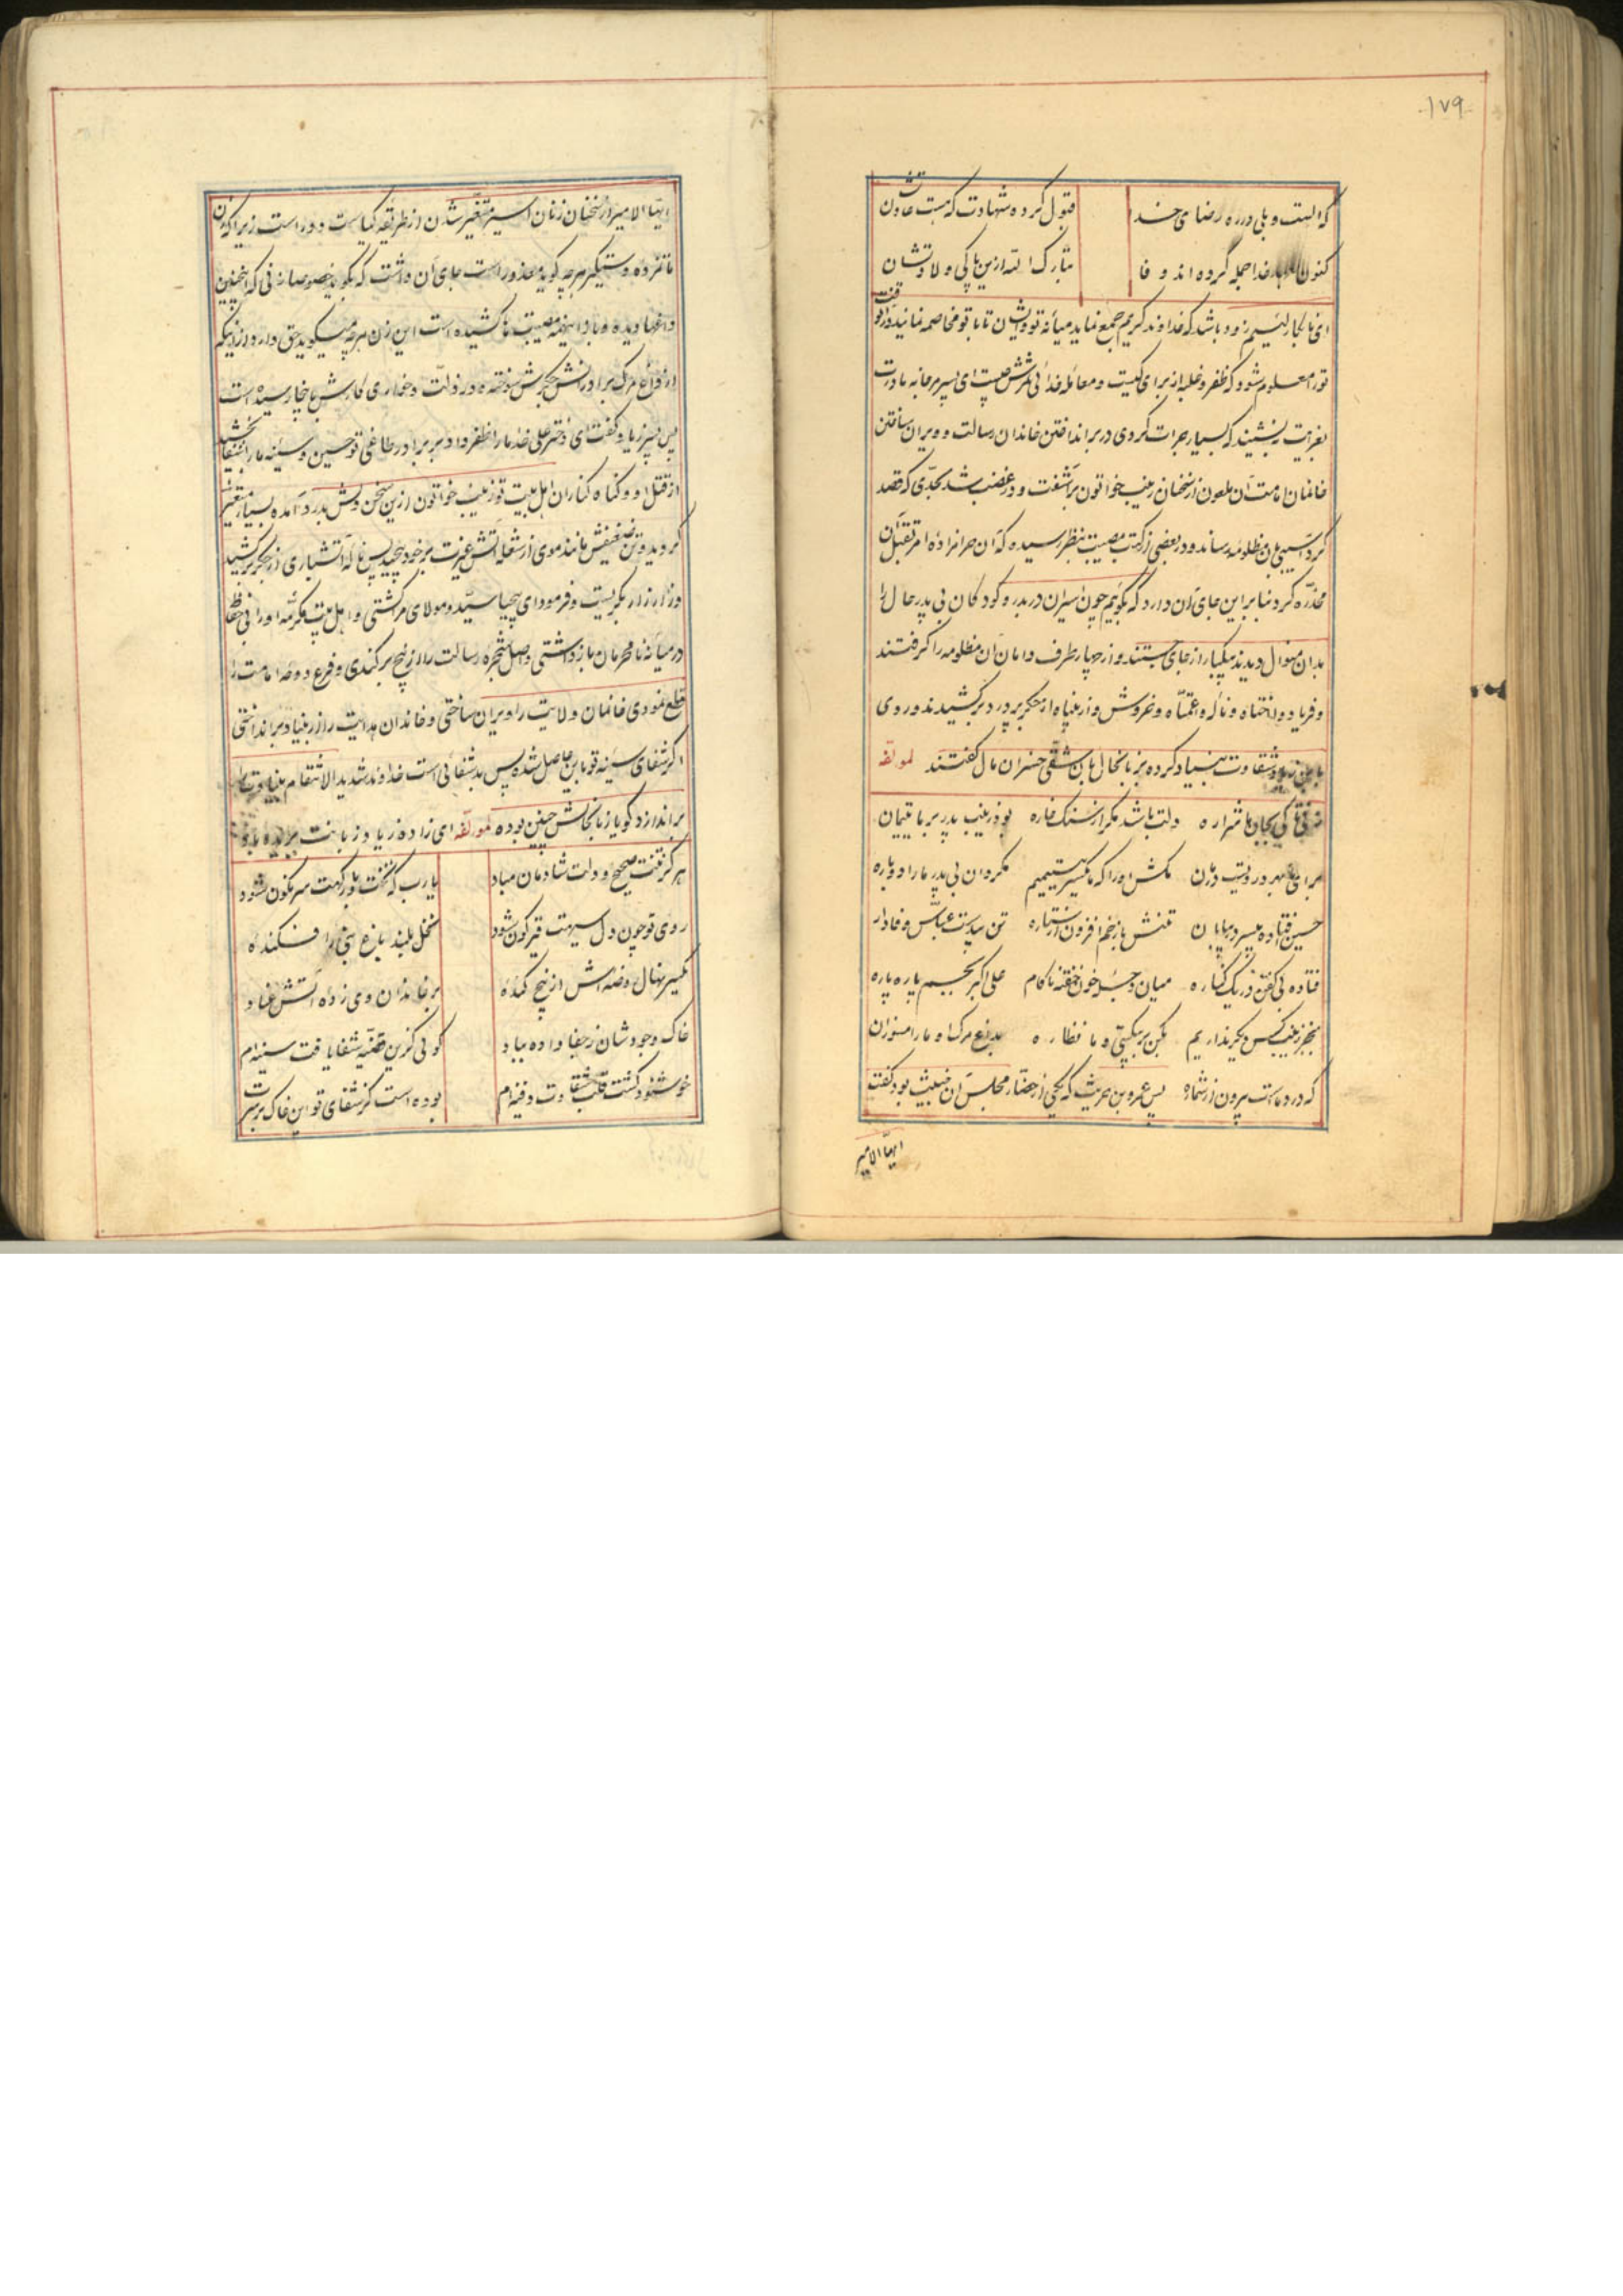 ۱۷۹
که الست و بلی در ره رضای خدا قبول کرده شهادت که هست عادتشان
کنون خدا جمله کرده اند وفا تبارک الله ازین پاکی ولادتشان
ای نابکار لئیم زود باشد که خداوند کریم جمع نماید میانه تو و ایشان تا با تو مخاصمه نمایند در آنوقت
تو را معلوم شود که ظفر و غلبه از برای کیست و معامله خدائی مکرش چیست ای پسر مرجانه مادرت
بعزایت بنشیند که بسیار جرات کردی در بر انداختن خاندان رسالت و ویران ساختن
خانمان امامت آن ملعون از سخنان زینب خواتون برآشفت و در غضب شد بحدی که قصد
کرد آسیبی بان مظلومه رساند و در بعضی از کتب مصیبت بنظر رسیده که آن حرامزاده امر بقتل آن
مخدره کرد بنابراین جای آن دارد که بگویم چون اسیران در بدر و کودکان بی پدر حال را
بدان منوال دیدند بیکبار از جای جستند و از چهار طرف دامان آن مظلومه را گرفتند
و فریاد وا اختاه و ناله وا عمتاه و خروش وا زینباه از جگر پر درد بر کشیدند و روی
شقاوت بنیاد کرده بزبانحال بان شقی خسران مال گفتند لمولفه
بجان ما شراره دلت باشد مگر از سنگ خاره بود زینب پدر بر ما یتیمان
مکش او را که ما یکسر یتیمیم مکردان بی پدر ما را دوباره
حسین فتاده بیسر در بیابان تنش با زخم افزون از ستاره تن سقایت عباس وفادار
فتاده بی کفن در یک کناره میان حجله خون خفته ناکام علی اکبر بجسم پاره پاره
بجز زینب کس دیگر نداریم بکن بر بیکسی ما نظاره بداغ مرگ او ما را مسوزان
که درد ماست بیرون از شماره پس عمرو بن حریث که یکی از حضار مجلس آن خبیث بود گفت
ایها الامیر
ایها الامیر از سخنان زنان اسیر متغیر شدن از طریقه کیاست دور است زیرا که زن
ماتم زده و دستگیر هر چه گوید معذور است جای آن داشت که بگوید خصوصا زنی که اینچنین
داغها دیده و با اینهمه مصیبت ها کشیده است این زن هر چه میگوید حق دارد از اینکه
از داغ مرگ برادرانش جگرش سوخته و در ذلت و خواری کارش باینجا رسیده است
پس پسر زیاد گفت ای دختر علی خدا ما را ظفر داد بر برادر طاغی تو حسین و سینه ما را شفا بخشید
از قتل او و گناه کناران اهل بیت تو زینب خواتون ازین سخن دلش بدرد آمده بسیار متغیر
گردید و تن ضعیفش مانند موی از شعله آتش غیرت بر خود پیچید پس ناله آتشباری از جگر بر کشید
و زار زار بگریست و فرمود ای بیحیا سید و مولای مرا کشتی و اهل بیت مکرمه او را بی حفاظ
در میانه نامحرمان بازداشتی و اصل شجره رسالت را از بیخ بر کندی و فرع دوحه امامت را
قطع نمودی خانمان ولایت را ویران ساختی و خاندان هدایت را از بنیاد بر انداختی
اگر شفای سینه تو باین حاصل شده پس بد شفائی است خداوند شدید الانتقام بنیادت را
بر اندازد گویا زبانحالش چنین بوده لمولفه ای زاده زیاد زبانت بریده باد
هرگز تنت صحیح و دلت شادمان مباد یارب که تخت و بارگهت سرنگون شود
روی تو چون دل سیهت قیرگون شود نخل بلند باغ نبی را فکنده
یکسر نهال روضه اش از بیخ کنده بر خاندان وی زده آتش عناد
خاک وجودشان ز جفا داده بباد گوئی کزین قضیه شفا یافت سینه ام
خوشنود گشت قلب شقاوت دفینه ام بوده است گر شفای تو این خاک بر سرت